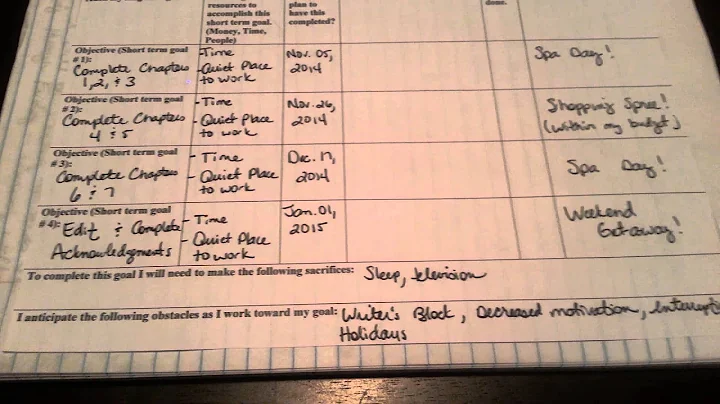 resources to
accomplish this
short term goal.
(Money, Time,
People)
plan to
have this
completed?
done.
Objective (Short term goal
# 1):
Complete Chapters
1, 2, & 3
- Time
- Quiet Place
to work
Nov. 05,
2014
Spa Day!
Objective (Short term goal
# 2):
Complete Chapters
4 & 5
- Time
- Quiet Place
to work
Nov. 26,
2014
Shopping Spree!
(within my budget)
Objective (Short term goal
# 3):
Complete Chapters
6 & 7
- Time
- Quiet Place
to work
Dec. 17,
2014
Spa Day!
Objective (Short term goal
# 4):
Edit & Complete
Acknowledgments
- Time
- Quiet Place
to work
Jan. 01,
2015
Weekend
Getaway!
To complete this goal I will need to make the following sacrifices: Sleep, television
I anticipate the following obstacles as I work toward my goal: Writer's Block, Decreased motivation,
Holidays